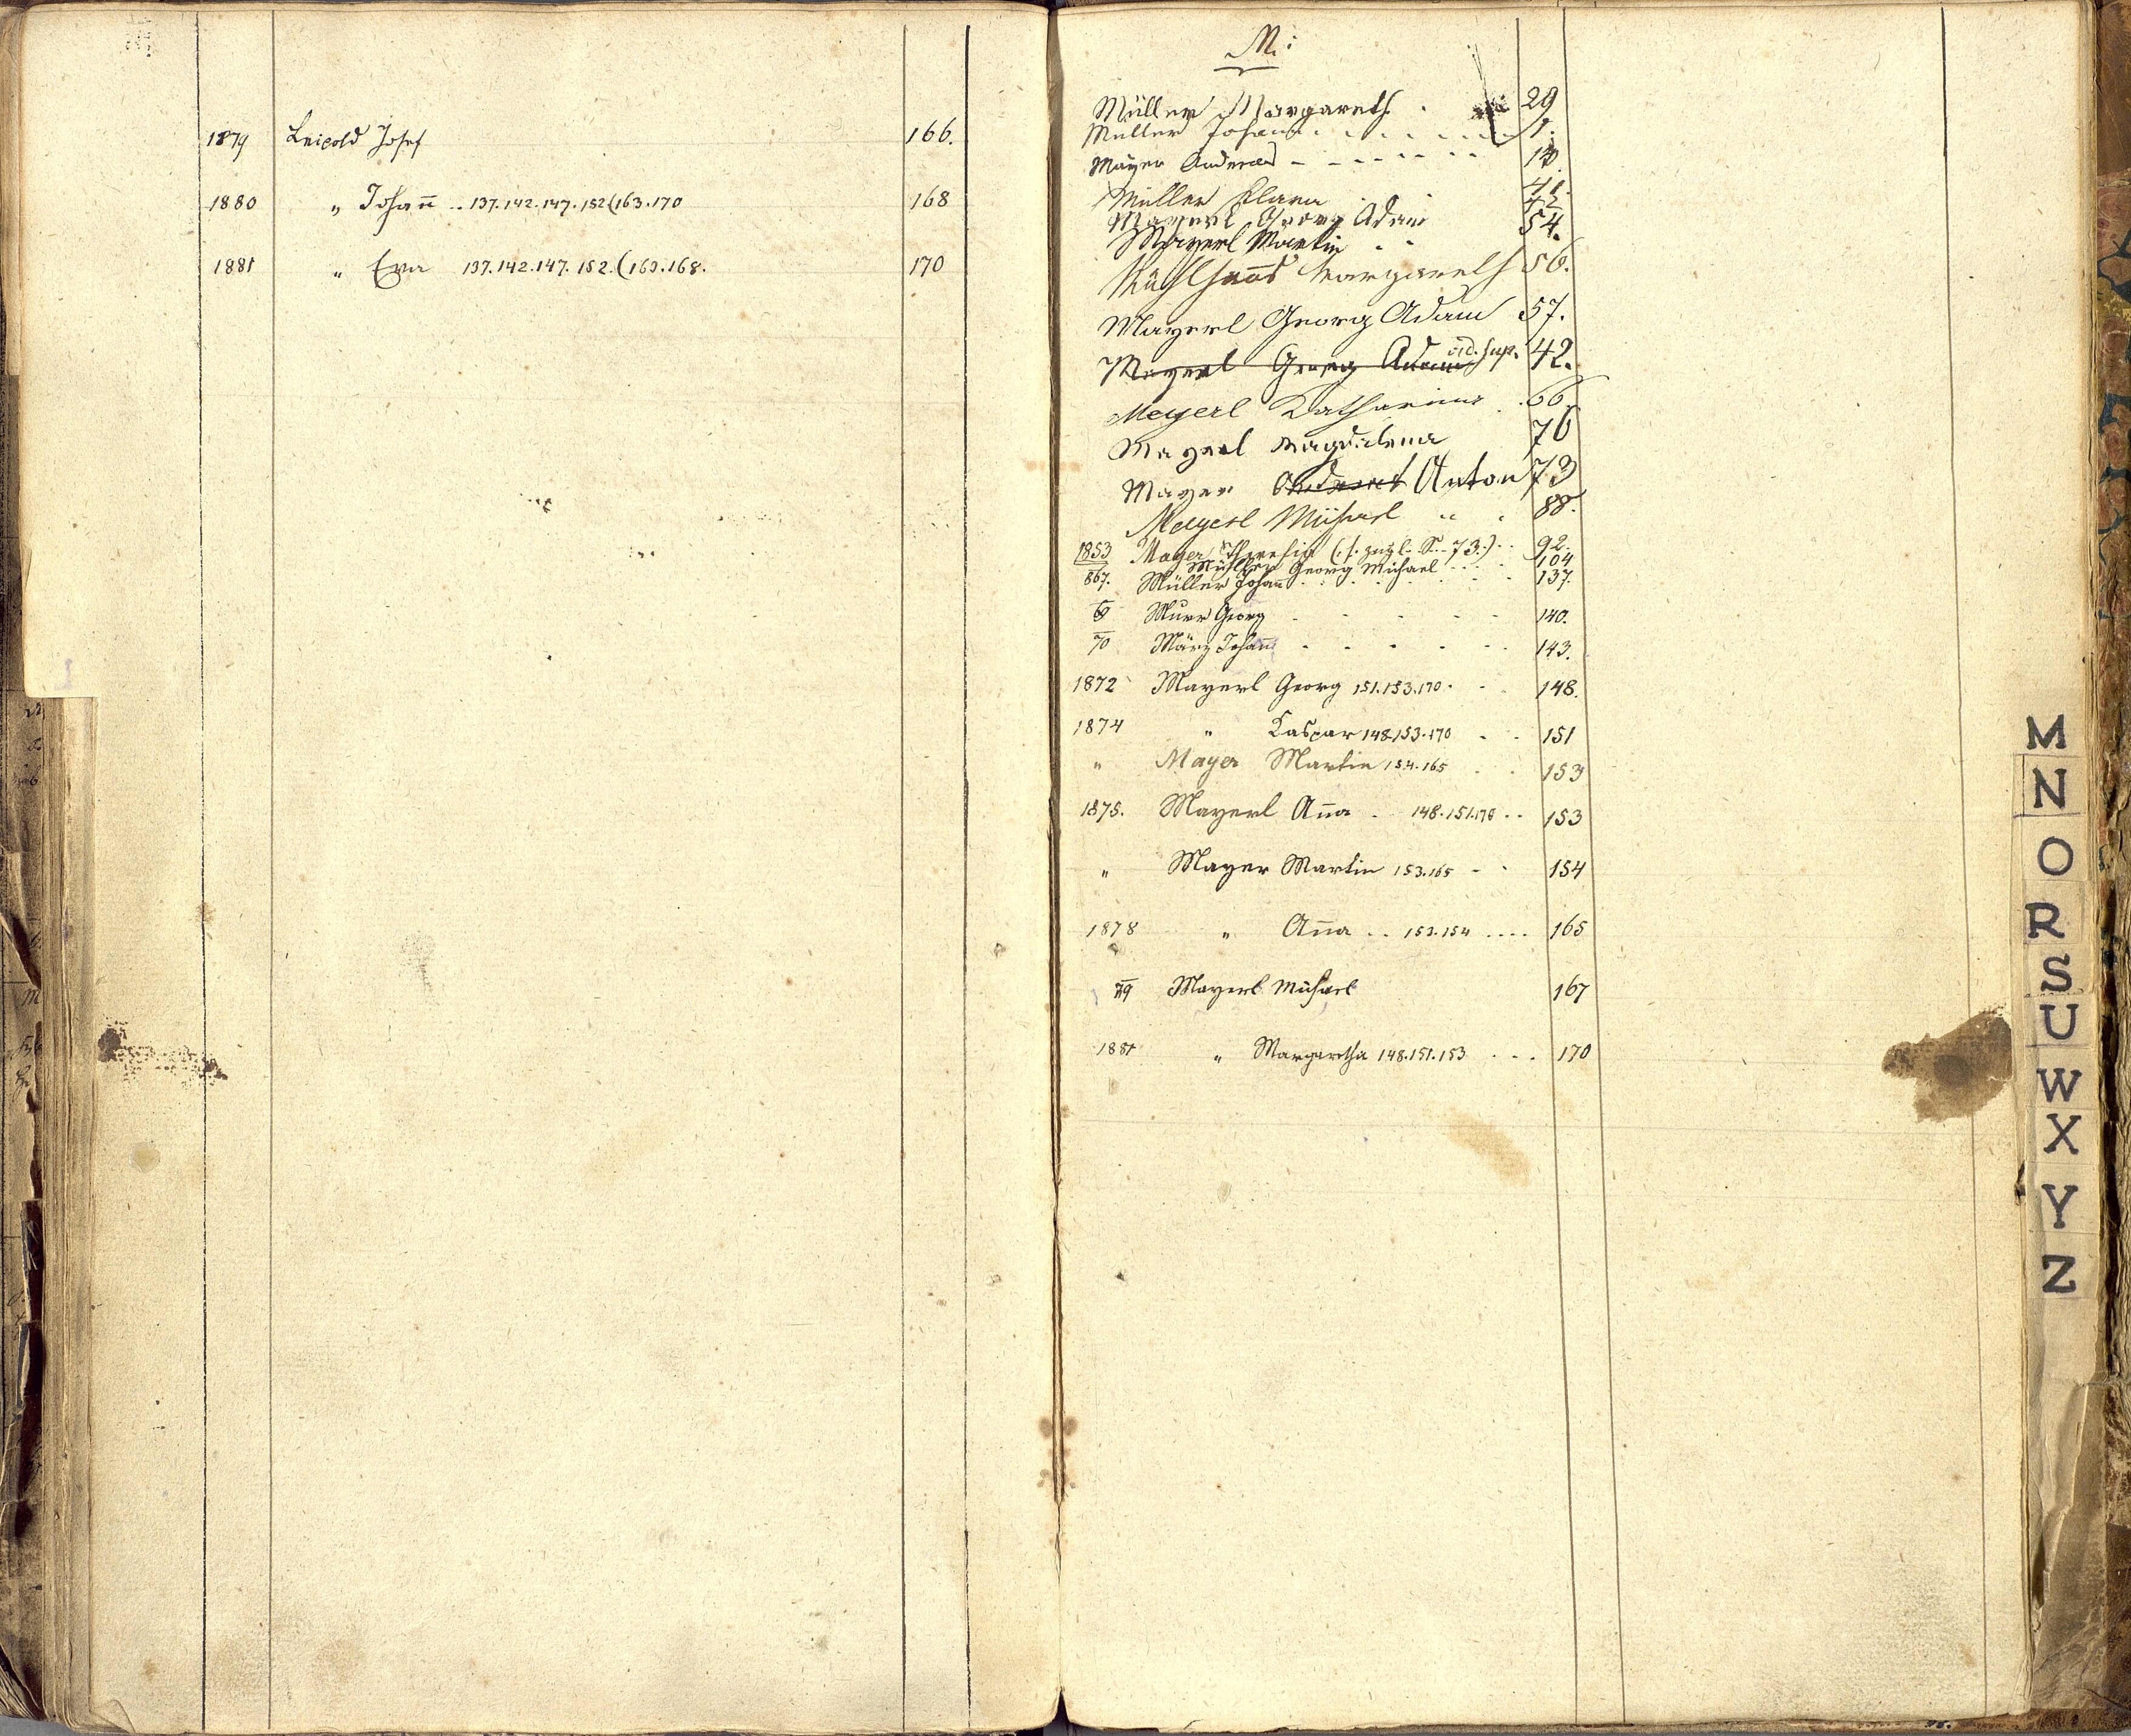 1879 Leipold Josef 166.
1880 „ Johann̄ .. 137.142.147.152(163.170 168
1881 „ Eva 137.142.147.152.(163.168. 170
M:
Müller Margareth . 29
Müller Johann . . . . . . . 1.
Mayer Andreas - - - - - - - 10.
Müller Clara . .
Mayerl Georg Adam
Mayerl Martin . . 54.
Mühlhans Margareth 56.
Mayerl Georg Adam 57.
Mayerl Georg Adam id. sup. 42.
Meyerl Katharina . 66.
Mayerl Magdalena 70
Mayer Andreas Anton 73
Meyerl Michael „ . 88.
1853 Mayer Theresia (s. zugl. S. 73.) . . 92.
Georg Michael . . . 104
867. Müller Johann . . . . . . 137.
69 Murr Georg - - - - - 140.
70 März Johann - - - - - 143.
1872 Mayerl Georg 151.153.170. . . 148.
1874 „ Kaspar 148.153.170 - - 151
„ Mayer Martin 154.165 . . 153
1875. Mayerl Ana . 148.151.170 . . 153
„ Mayer Martin 153.165 - . 154
1878 „ Ana . . 153.154 . . . . 165
79 Mayerl Michael 167
1881 „ Margaretha 148.151.153 . . . 170
M
N
O
R
S
U
W
X
Y
Z